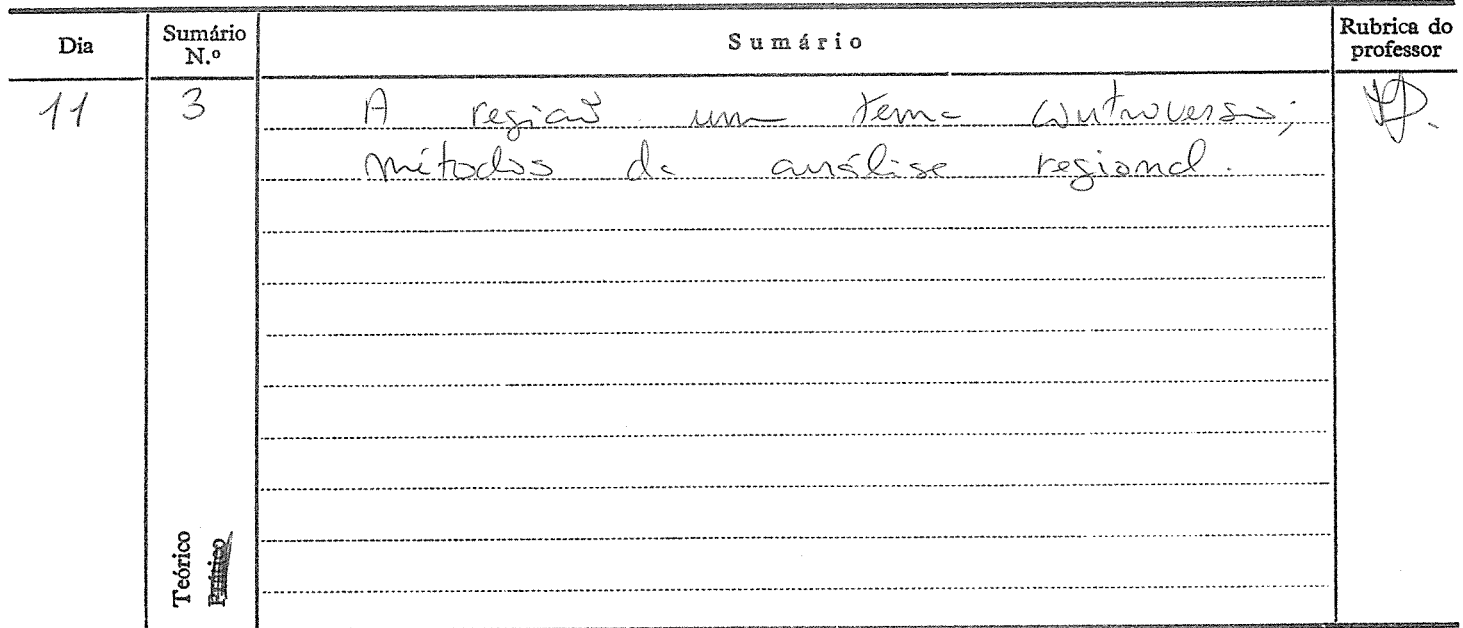 Dia
Sumário N.º
Sumário
Rubrica do professor
11
3
A região um tema controverso;
métodos de análise regional.
Teórico
Prático